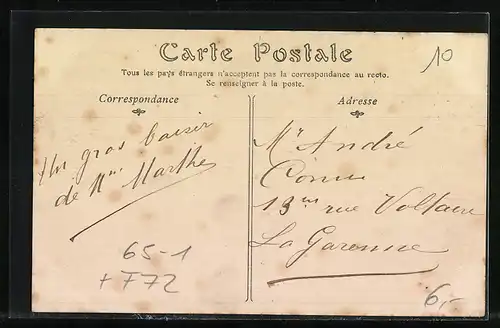 Carte Postale
10
Tous les pays étrangers n'acceptent pas la correspondance au recto.
Se renseigner à la poste.
Correspondance
Adresse
Un gros baiser
de Mme Marthe
Mr André
13 rue Voltaire
La Garenne
65-1
+ F72
6,-